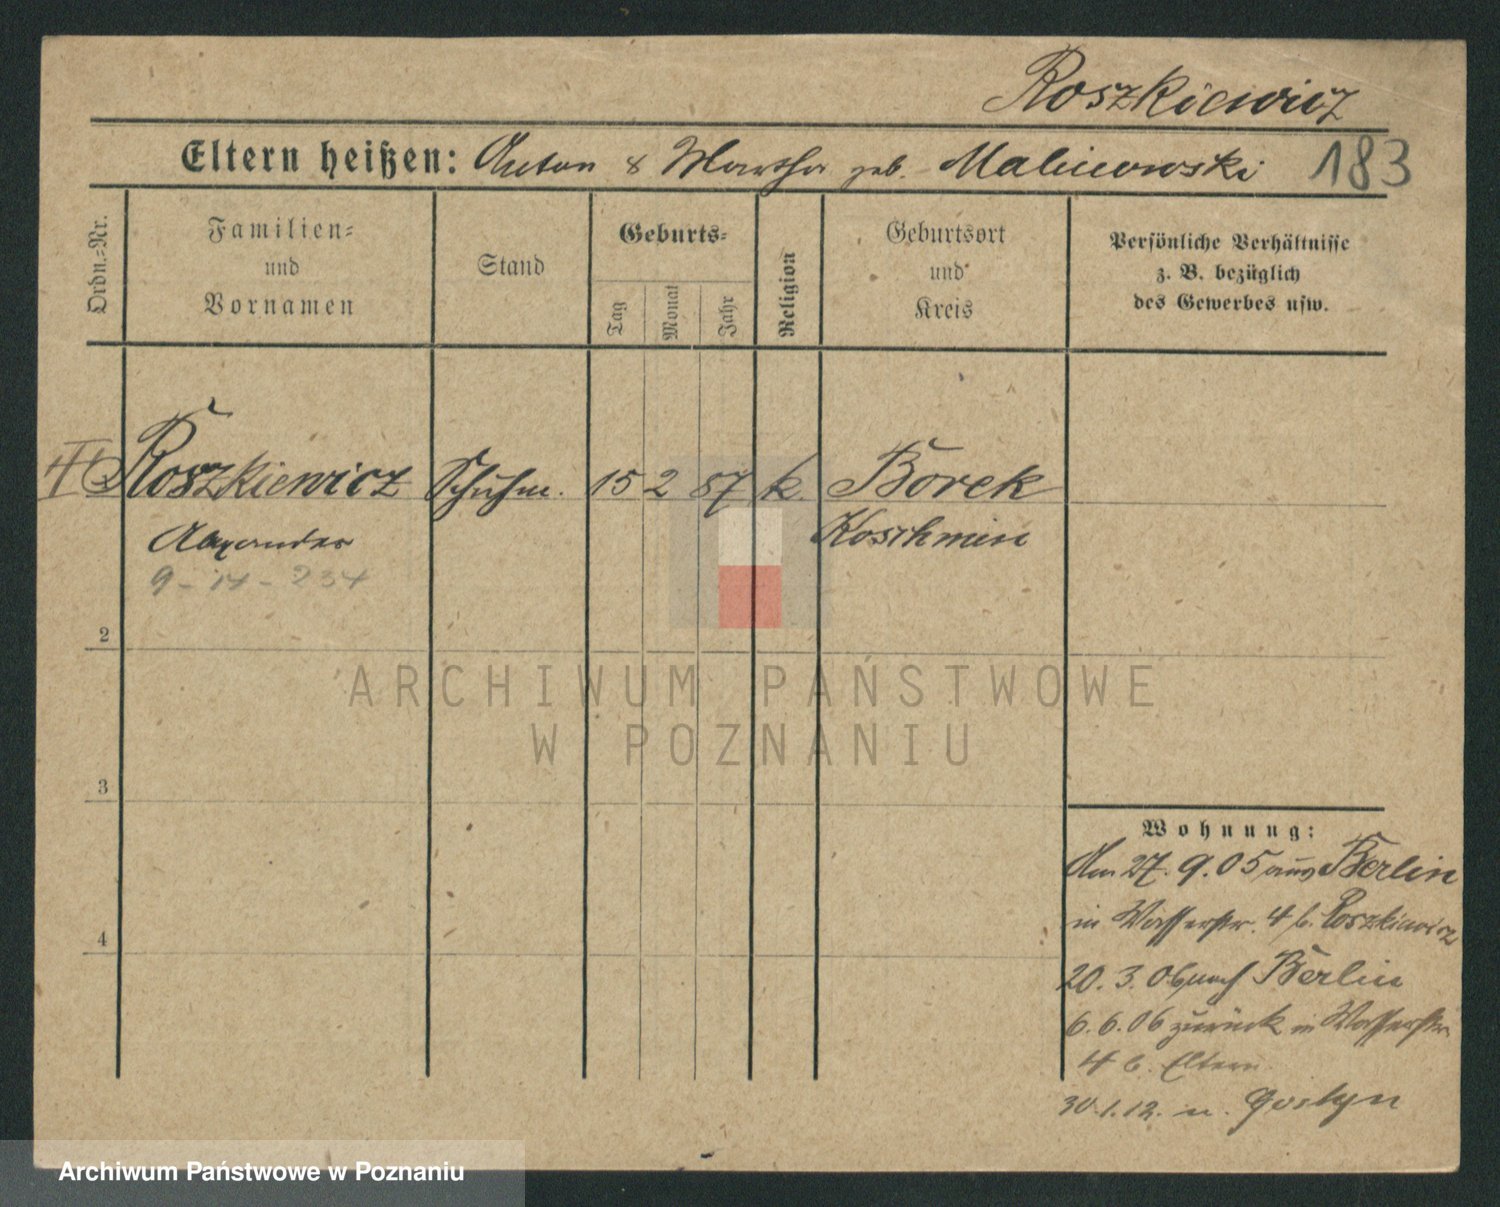 Roszkiewicz
Eltern heißen: Anton & Martha geb. Malinowski 183
Ordn.-Nr.
Familien-
und
Vornamen
Stand
Geburts-
Tag
Monat
Jahr
Religion
Geburtsort
und
Kreis
Persönliche Verhältnisse
z. B. bezüglich
des Gewerbes usw.
Roszkiewicz Schuhm. 15 2 87 k. Borek
Alexander Koschmin
9 - 14 - 234
2
3
4
ARCHIWUM PAŃSTWOWE
W POZNANIU
Wohnung:
Am 27. 9. 05 aus Berlin
in Wasserstr. 4 b. Roszkiewicz
20. 3. 06 nach Berlin
6. 6. 06 zurück in Wasserstr.
4 b. Eltern
30.1.12. n. Gostyn
Archiwum Państwowe w Poznaniu